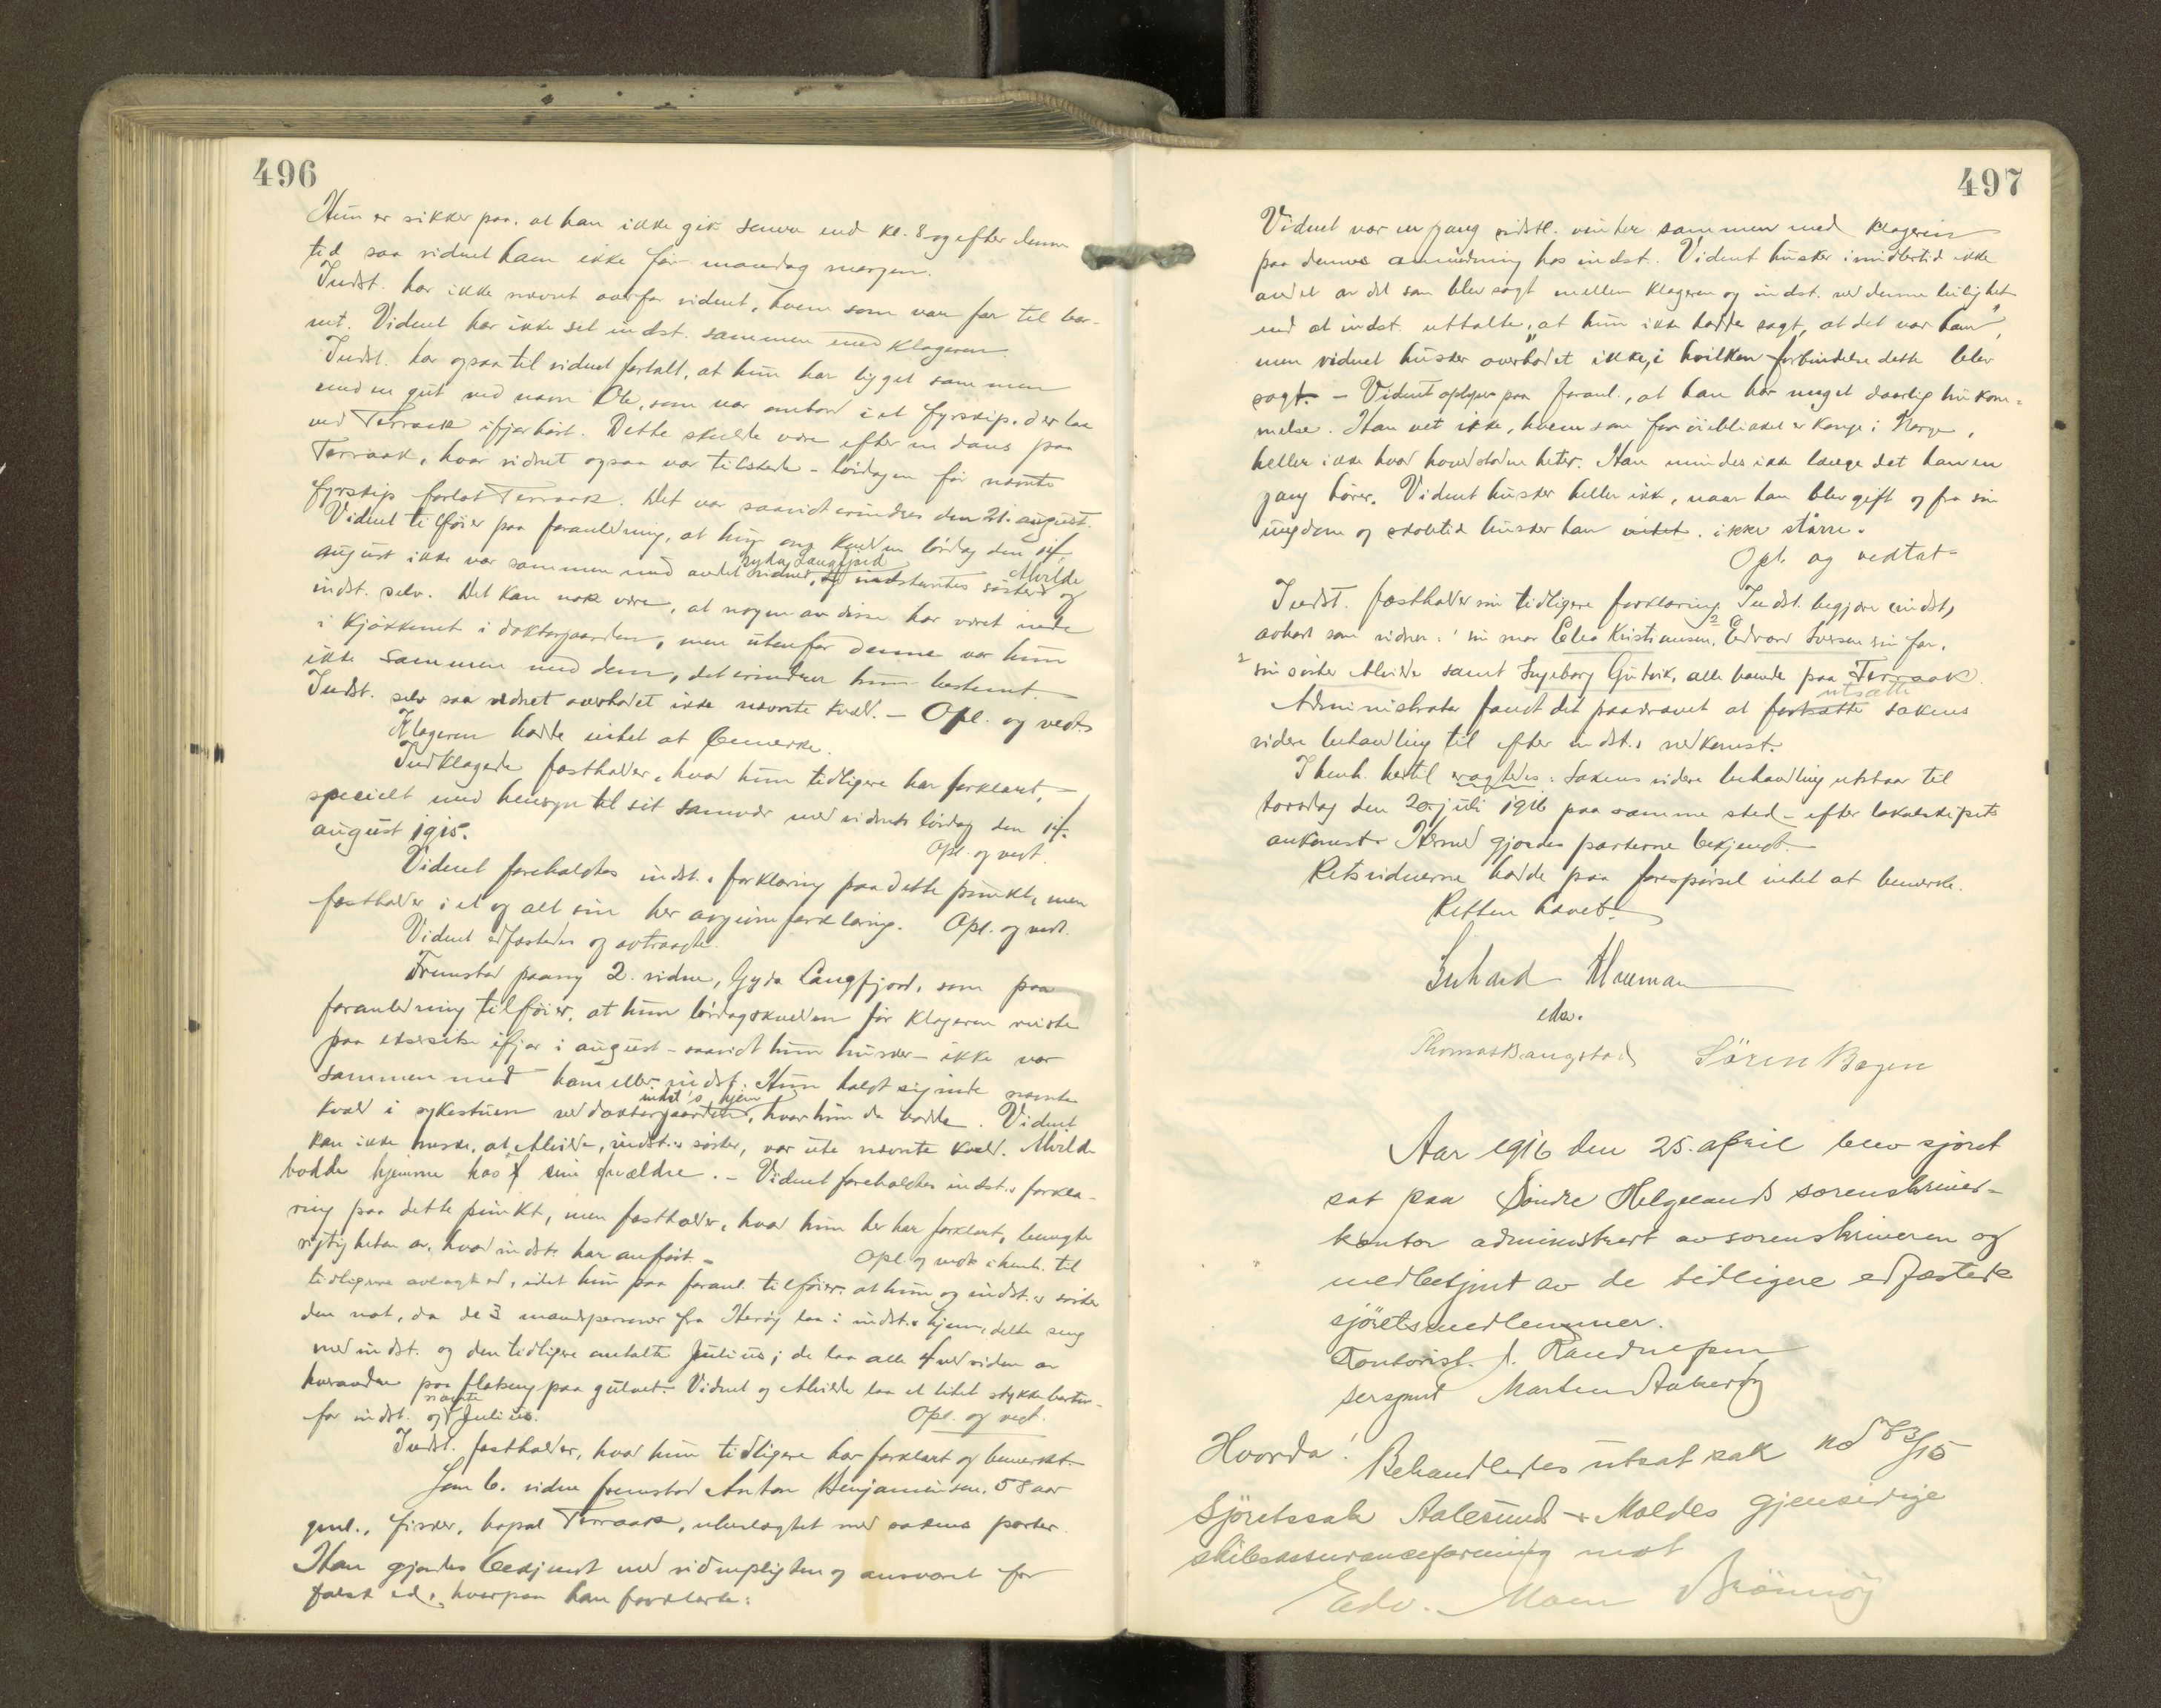 496
Hun er sikker paa, at han ikke gik senere end kl. 8 og efter denne
tid saa vidnet ham ikke før mandag morgen.
Indst. har ikke nævnt overfor vidnet, hvem som var far til bar-
net. Vidnet har ikke set indst. sammen med klageren.
Indst. har ogsaa til vidnet fortalt, at hun har ligget sammen
med en gut ved navn Ole, som var ombord i et fyrskip, der laa
ved Terraak ifjor høst. Dette skulde være efter en dans paa
Terraak, hvor vidnet ogsaa var tilstede – lørdagen før nævnte
fyrskip forlot Terraak. Det var saavidt erindres den 21. august.
Vidnet tilføier paa foranledning, at hun kvelden lørdag den 14.
august ikke var sammen med andet vidne, Gyda Langfjord, indstevntes søster Alvilde og
indst. selv. Det kan nok være, at nogen av disse har været inde
i kjøkkenet i doktorgaarden, men utenfor denne var hun
ikke sammen med dem, det erindrer hun bestemt.
Indst. selv saa vidnet overhodet ikke nævnte kveld. – Opl. og vedt.
Klageren hadde intet at bemerke.
Indklagede fastholder, hvad hun tidligere har forklaret,
specielt med hensyn til sit samvær med vidnet lørdag den 14.
august 1915.
Opl. og vedt.
Vidnet foreholdtes indst.s forklaring paa dette punkt, men
fastholder i et og alt sin her avgivne forklaring. Opl. og vedt.
Vidnet edfæstedes og avtraadte.
Fremstod paany 2. vidne, Gyda Langfjord, som paa
foranledning tilføier, at hun lørdagskvelden før klageren reiste
paa eksersis ifjor i august – saavidt hun husker – ikke var
sammen med ham eller indst. Hun holdt sig inde nævnte
kveld i sykestuen ved doktorgaarden, hvor hun da bodde. Vidnet
kan ikke huske, at Alvilde, indst.s søster, var ute nævnte kveld. Alvilde
bodde hjemme hos sine forældre. – Vidnet foreholdtes indst.s forkla-
ring paa dette punkt, men fastholder, hvad hun her har forklart, benegter
rigtigheten av, hvad indst. har anført. –
Opl. og vedt. i henh. til
tidligere avlagt ed, idet hun paa foranl. tilføier, at hun og indst.s søster
den nat, da de 3 mandspersoner fra Herøy laa i indst.s hjem, delte seng
med indst. og den tidligere omtalte Julius; de laa alle 4 ved siden av
hverandre paa flatseng paa gulvet. Vidnet og Alvilde laa et litet stykke borten-
for indst. og nævnte Julius.
Opl. og vedt.
Indst. fastholder, hvad hun tidligere har forklart og bemerket.
Som 6. vidne fremstod Anton Benjaminsen, 58 aar
gml., fisker, bopæl Terraak, ubeslægtet med sakens parter.
Han gjordes bekjendt med vidnepligten og ansvaret for
falsk ed, hvorpaa han forklarte:
497
Vidnet var en gang sidstl. vinter sammen med klageren
paa dennes anmodning hos indst. Vidnet husker imidlertid ikke
andet av det som blev sagt mellem klageren og indst. ved denne leilighet
end at indst. uttalte, "at hun ikke hadde sagt, at det var ham",
men vidnet husker overhodet ikke, i hvilken forbindelse dette blev
sagt. – Vidnet oplyser paa foranl., at han har meget daarlig hukom-
melse. Han vet ikke, hvem som for øieblikket er konge i Norge,
heller ikke hvad hovedstaden heter. Han mindes ikke længe det han en
gang hører. Vidnet husker heller ikke, naar han blev gift og fra sin
ungdom og skoletid husker han intet. ikke større.
Opl. og vedtat
Indst. fastholder sin tidligere forklaring. Indst. begjærer endst,
avhørt som vidner: sin mor Elea Kristiansen, Edvard Iversen sin far,
sin søster Alvilde samt Ingeborg Gutvik, alle boende paa Terraak.
Administrator fandt det paakrævet at fortsætte utsætte sakens
videre behandling til efter indst.s nedkomst.
I henh. hertil eragtedes: Sakens videre behandling utstaar til
torsdag den 20. juli 1916 paa samme sted – efter lokalskipets
ankomst. Hermed gjordes parterne bekjendt.
Retsvidnerne hadde paa forespørsel intet at bemerke.
Retten hævet.
edv.
Thomas Bangstad Søren Bøgen
Aar 1916 den 25. april blev sjøret
sat paa Søndre Helgelands sorenskriver-
kontor administrert av sorenskriveren og
medbetjent av de tidligere edfæstede
sjøretsmedlemmer.
Hvorda!
Behandledes utsat sak no 83/15
Sjøretssak Aalesund & Moldes gjensidige
skibsassuranceforening mot
Edv. Moen Brønnøy